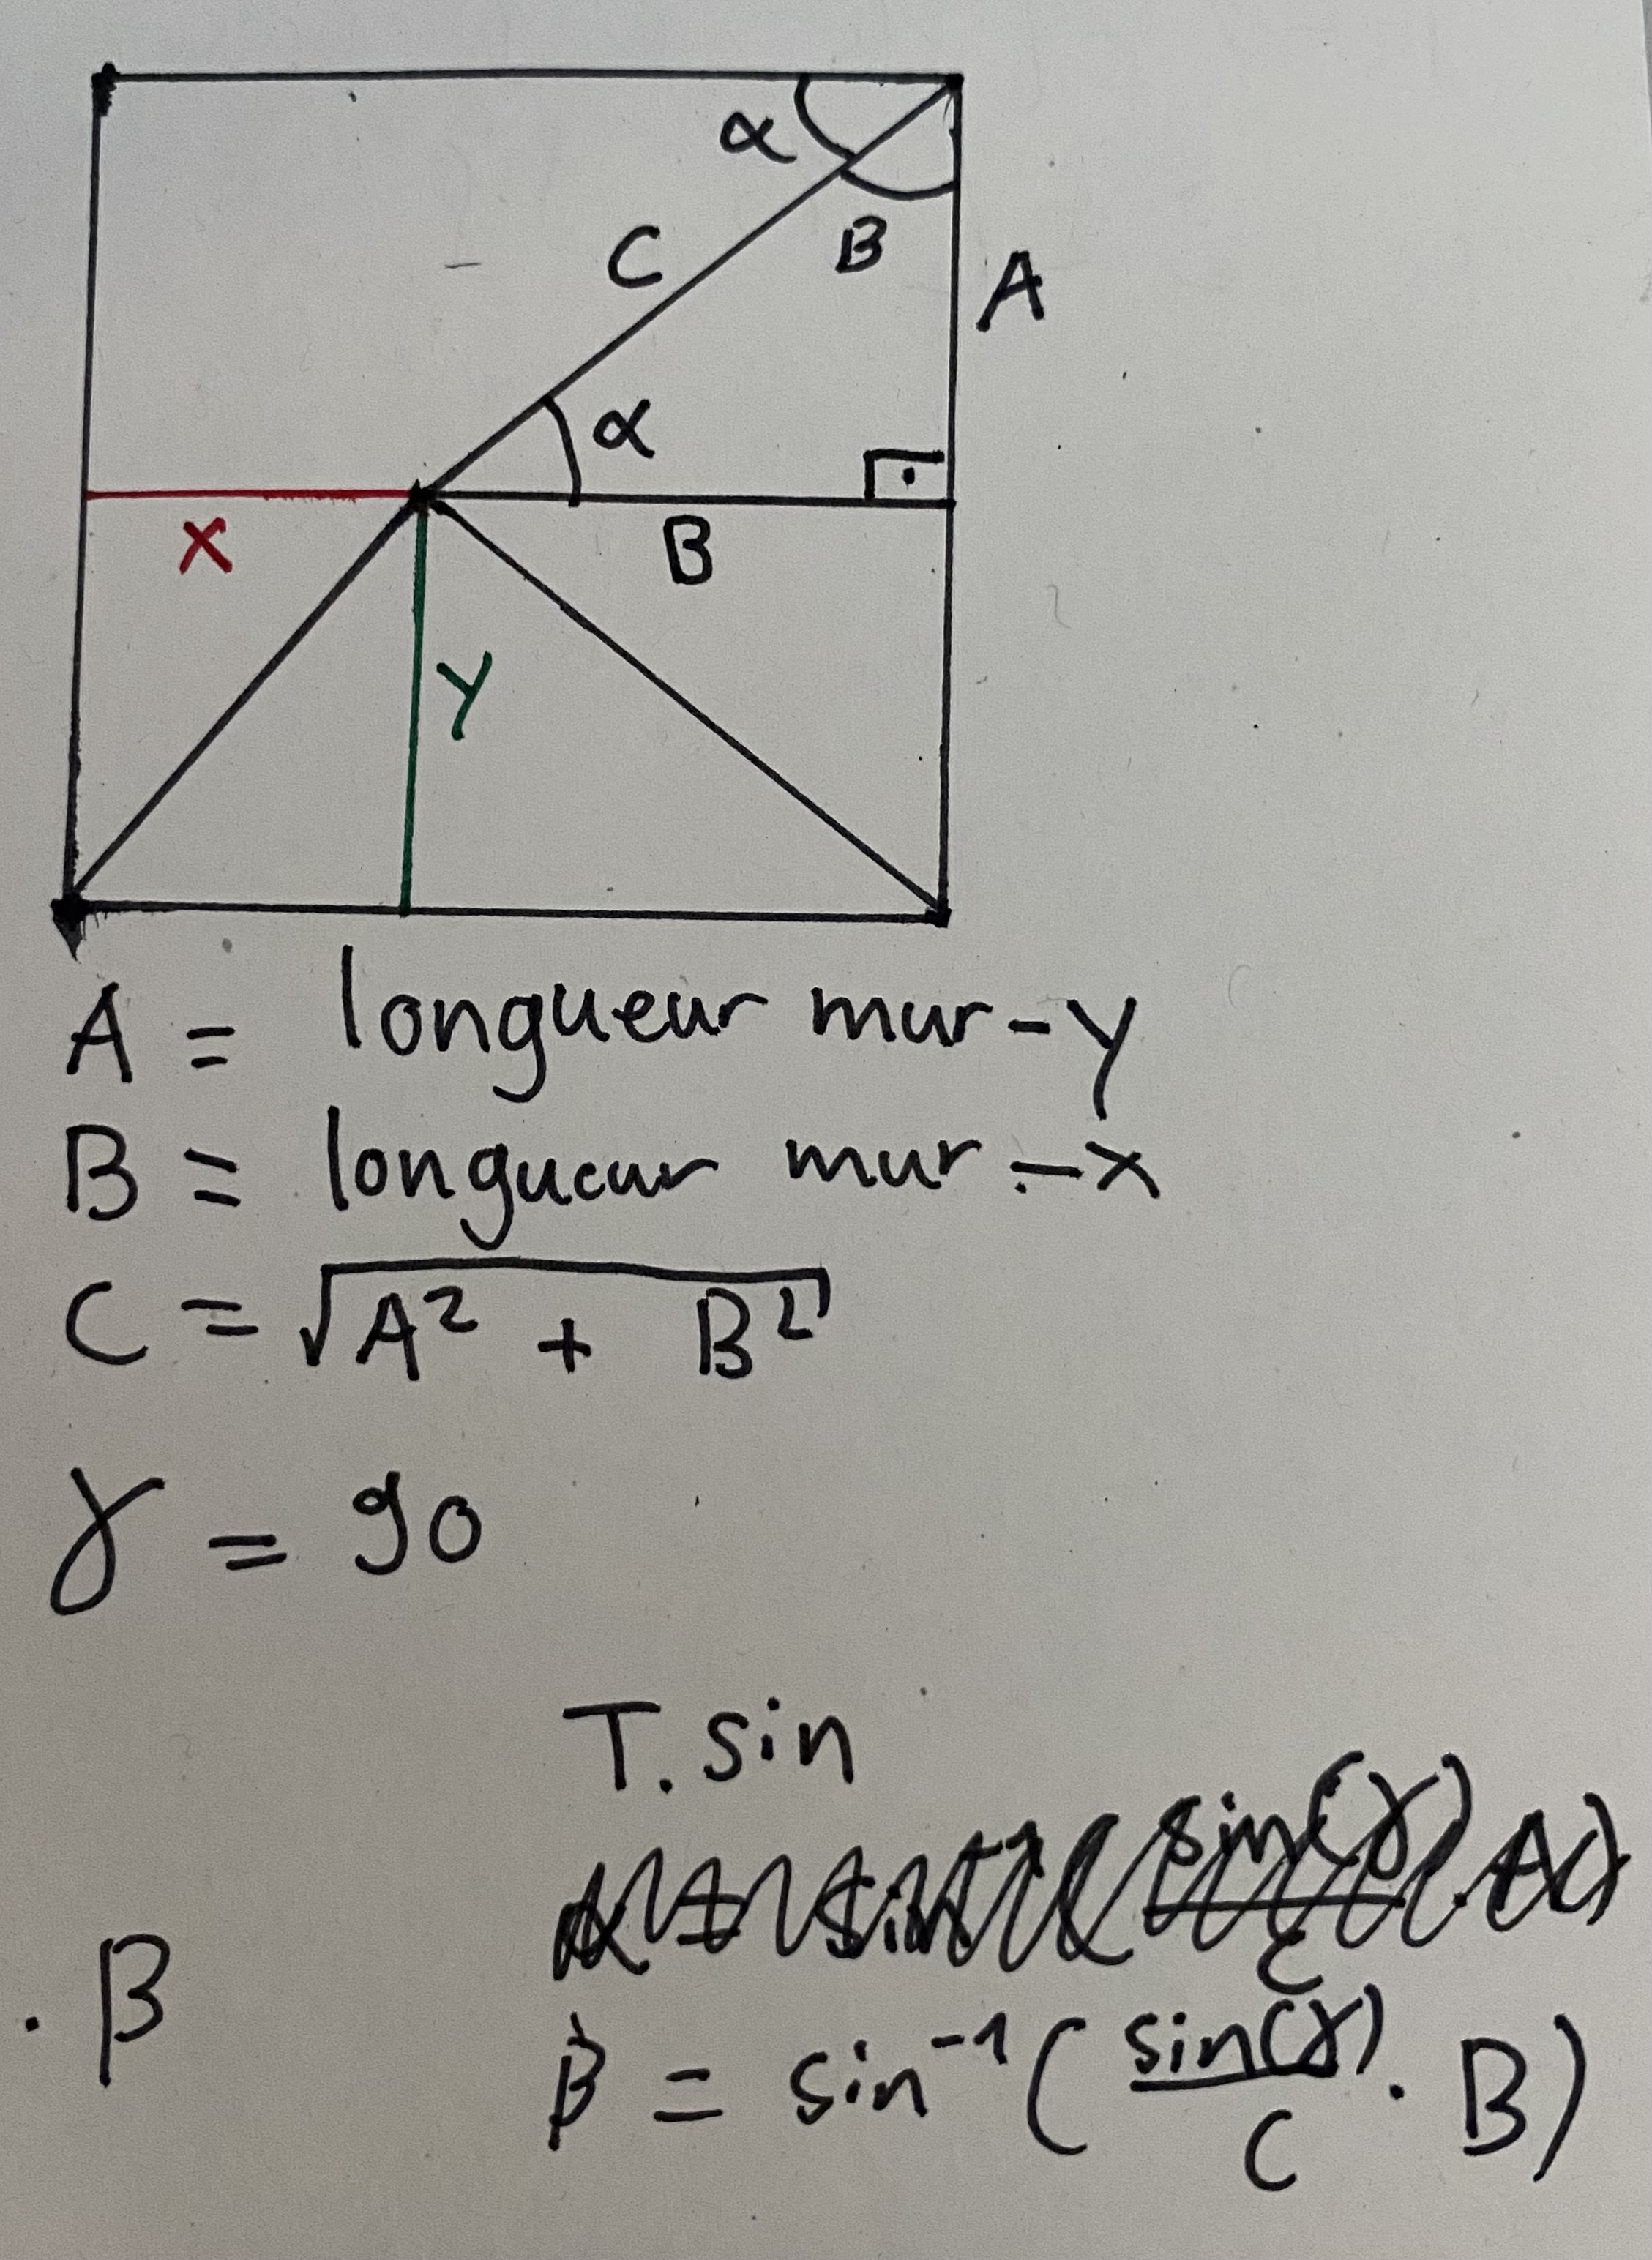 α
C
B
A
α
X
B
Y
A = longueur mur - y
B = longueur mur - x
C = √A² + B²
γ = 90
T. sin
α = sin⁻¹ ( sin(γ) / C · A )
. β
β = sin⁻¹ ( sin(γ) / C · B )